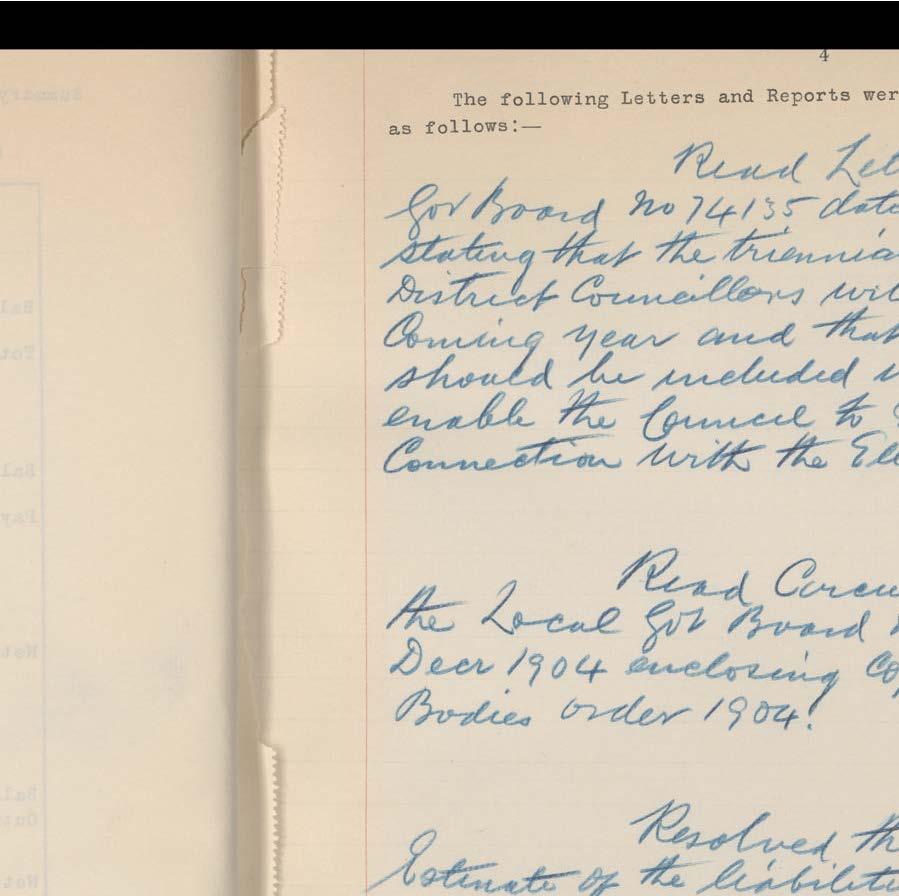 4
The following Letters and Reports wer
as follows:—
Read Let
Gov Board No 74135 date
stating that the triennia
District Councillors wil
Coming year and that
should be included
enable the Council to
Connection with the Ele
Read Circu
the Local Gov Board
Decr 1904 enclosing Co
Bodies order 1904.
Resolved th
Estimate of the liabilite